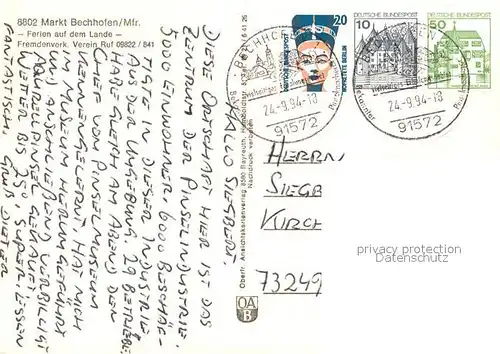 8802 Markt Bechhofen/Mfr.
— Ferien auf dem Lande —
Fremdenverk. Verein Ruf 09822 / 841
HALLO SIEGBERT
DIESE ORTSCHAFT HIER IST DAS
ZENTRUM DER PINSELINDUSTRIE.
5000 EINWOHNER, 6000 BESCHÄF-
TIGTE IN DIESER INDUSTRIE
AUS DER UMGEBUNG. 29 BETRIEBE.
HABE GLEICH AM ABEND DEN
CHEF VOM PINSELMUSEUM
KENNENGELERNT. HAT MICH
IM MUSEUM HERUMGEFÜHRT
UND ANSCHLIEßEND VERBILLIGT
AQUARELLPINSEL GEKAUFT.
WETTER BIS 25°, SUPER. ESSEN
FANTASTISCH. GRUß DIETER
Oberfr. Ansichtskartenverlag 8580 Bayreuth, Humboldtstr.
Nachdruck verboten
OA
B
20
DEUTSCHE BUNDESPOST
NOFRETETE BERLIN
10
DEUTSCHE BUNDESPOST
50
DEUTSCHE BUNDESPOST
BECHHOFEN
24-9.94-18
91572
BECHHOFEN
24-9.94-18
91572
HERRN
SIEGB
KIRCH
73249
privacy protection
Datenschutz